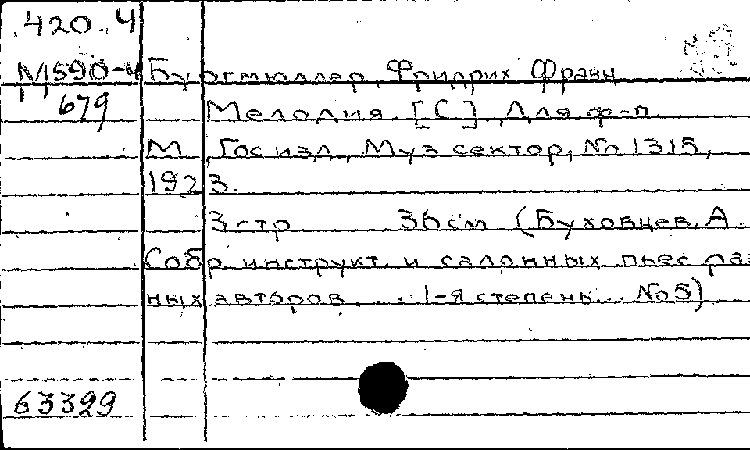 420.4
М590-4 Бургмюллер, Фридрих Франц
679 Мелодия. [С] Для ф-п.
М., Госизд., Муз сектор, № 1315,
1923.
3 стр 36 см (Буховцев, А.
Собр. инструкт. и салонных пьес раз
ных авторов.... 1-я степень... № 5)
63399